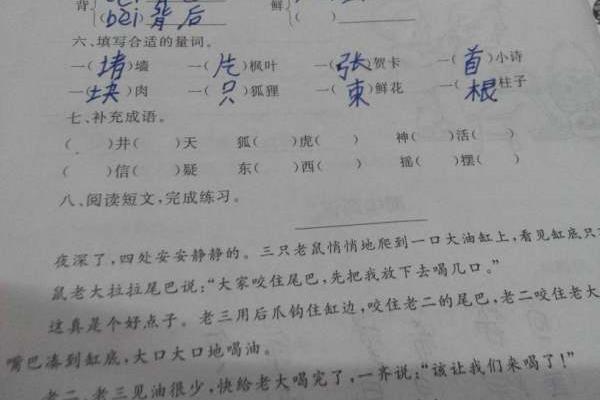 背
(bèi)背后
鲜
六、填写合适的量词。
一(堵)墙 一(片)枫叶 一(张)贺卡 一(首)小诗
一(块)肉 一(只)狐狸 一(束)鲜花 一(根)柱子
七、补充成语。
( )井( )天 狐( )虎( ) 神( )活( )
( )信( )疑 东( )西( ) 摇( )摆( )
八、阅读短文,完成练习。
夜深了,四处安安静静的。三只老鼠悄悄地爬到一口大油缸上,看见缸底只
鼠老大拉拉尾巴说:“大家咬住尾巴,先把我放下去喝几口。”
这真是个好点子。老三用后爪钩住缸边,咬住老二的尾巴,老二咬住老大
嘴巴凑到缸底,大口大口地喝油。
老二、老三见油很少,快给老大喝完了,一齐说:“该让我们来喝了!”